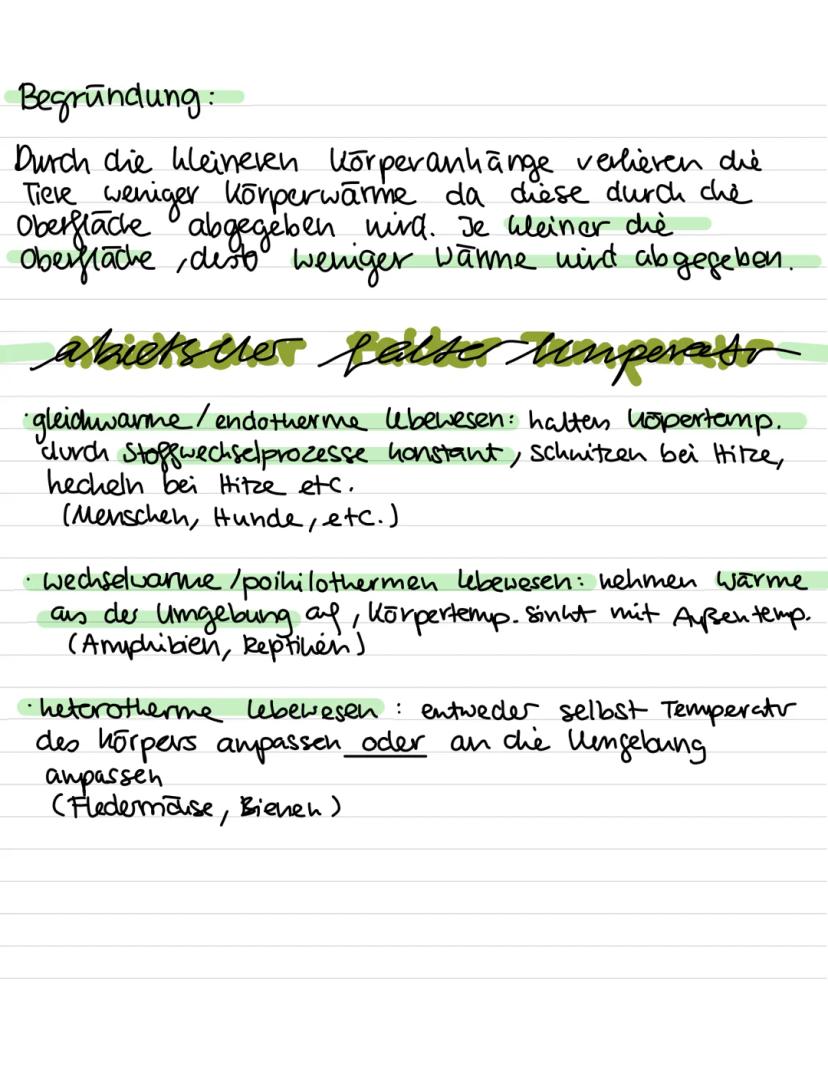 Begründung:
Durch die kleineren Körperanhänge verlieren die
Tiere weniger Körperwärme da diese durch die
Oberfläche abgegeben wird. Je kleiner die
Oberfläche, desto weniger Wärme wird abgegeben.
abiotischer Faktor Temperatur
· gleichwarme/endotherme Lebewesen: halten Köpertemp.
durch Stoffwechselprozesse konstant, schwitzen bei Hitze,
hecheln bei Hitze etc.
(Menschen, Hunde, etc.)
· wechselwarme/poikilothermen Lebewesen: nehmen Wärme
aus der Umgebung auf, Körpertemp. sinkt mit Außentemp.
(Amphibien, Reptilien)
· heterotherme Lebewesen: entweder selbst Temperatur
des Körpers anpassen oder an die Umgebung
anpassen
(Fledermäuse, Bienen)